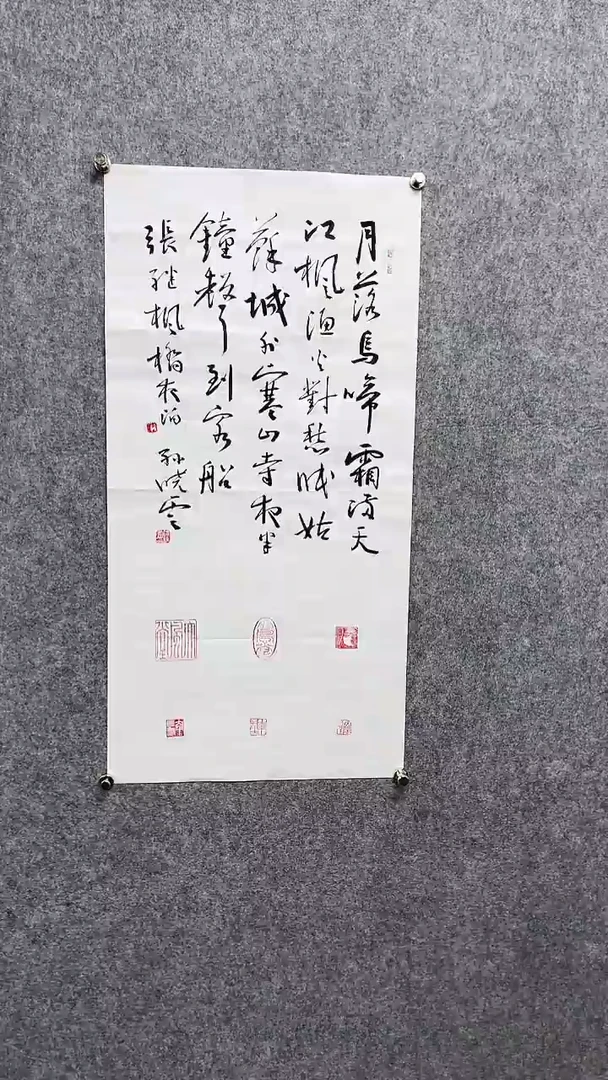 月落烏啼霜滿天
江楓漁火對愁眠姑
蘇城外寒山寺夜半
鐘聲到客船
張繼楓橋夜泊 孫曉雲